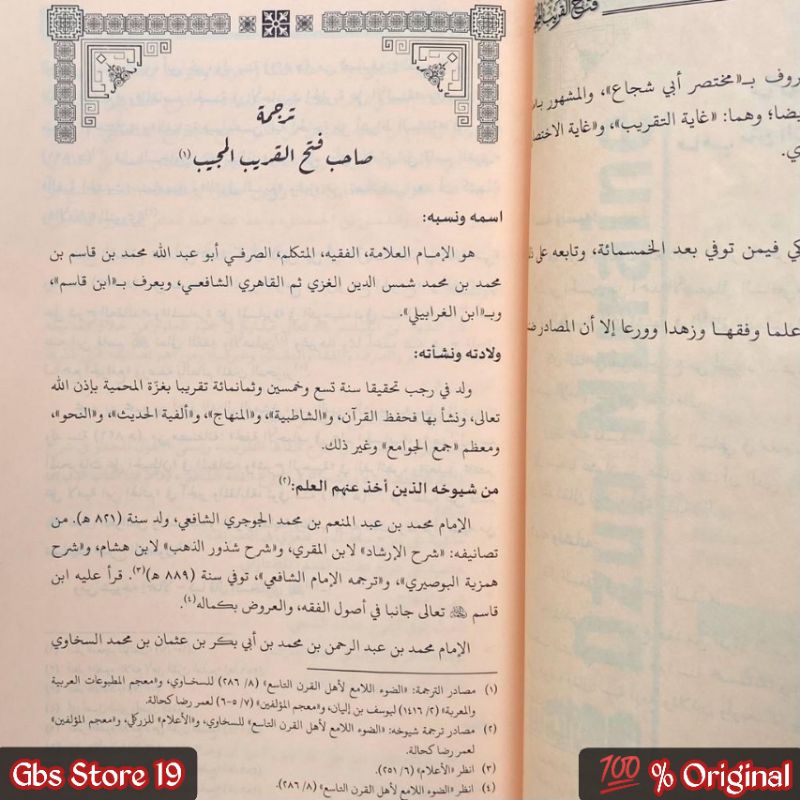 ترجمة
صاحب فتح القريب المجيب (١)
اسمه ونسبه:
هو الإمام العلامة، الفقيه، المتكلم، الصرفي أبو عبد الله محمد بن قاسم بن
محمد بن محمد شمس الدين الغزي ثم القاهري الشافعي، ويعرف بـ«ابن قاسم»،
وبـ«ابن الغرابيلي».
ولادته ونشأته:
ولد في رجب تحقيقا سنة تسع وخمسين وثمانمائة تقريبا بغزة المحمية بإذن الله
تعالى، ونشأ بها فحفظ القرآن، و«الشاطبية»، و«المنهاج»، و«ألفية الحديث»، و«النحو»،
ومعظم «جمع الجوامع» وغير ذلك.
من شيوخه الذين أخذ عنهم العلم: (٢)
الإمام محمد بن عبد المنعم بن محمد الجوجري الشافعي، ولد سنة (٨٢١ هـ). من
تصانيفه: «شرح الإرشاد» لابن المقري، و«شرح شذور الذهب» لابن هشام، و«شرح
همزية البوصيري»، و«ترجمه الإمام الشافعي»، توفي سنة (٨٨٩ هـ)(٣). قرأ عليه ابن
قاسم تعالى جانبا في أصول الفقه، والعروض بكماله(٤).
الإمام محمد بن عبد الرحمن بن محمد بن أبي بكر بن عثمان بن محمد السخاوي
(١) مصادر الترجمة: «الضوء اللامع لأهل القرن التاسع» (٨/ ٢٨٦) للسخاوي، و«معجم المطبوعات العربية
والمعربة» (٢/ ١٤١٦) ليوسف بن إليان، و«معجم المؤلفين» (٧/ ٥-٦) لعمر رضا كحالة.
(٢) مصادر ترجمة شيوخه: «الضوء اللامع لأهل القرن التاسع» للسخاوي، و«الأعلام» للزركلي، و«معجم المؤلفين»
لعمر رضا كحالة.
(٣) انظر «الأعلام» (٦/ ٢٥١).
(٤) انظر «الضوء اللامع لأهل القرن التاسع» (٨/ ٢٨٦).
روف بـ«مختصر أبي شجاع»، والمشهور
يضا؛ وهما: «غاية التقريب»، و«غاية
ي.
كي فيمن توفي بعد الخمسمائة، وتابعه على
علما وفقهـا وزهدا وورعا إلا أن المصادر
Gbs Store 19
💯 % Original